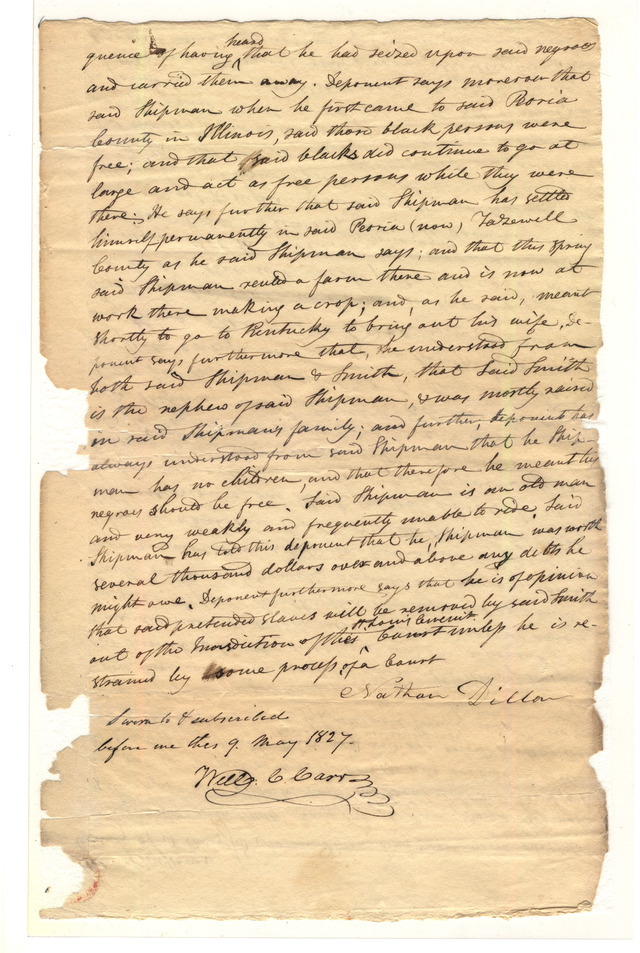 heard
quence of having ^ that he had seized upon said negroes
and carried them away. Deponent says moreover that
said Shipman when he first came to said Peoria
County in Illinois, said those black persons were
free; and that said blacks did continue to go at
large and act as free persons while they were
there. He says further that said Shipman has settled
himself permanently in said Peoria (now) Tazewell
County as he said Shipman says; and that this spring
said Shipman rented a farm there and is now at
work there making a crop; and, as he said, meant
shortly to go to Kentucky to bring out his wife, De-
ponent says furthermore that, he understood from
both said Shipman & Smith, that said Smith
is the nephew of said Shipman, & was mostly raised
in said Shipmans family; and further, deponent has
always understood from said Shipman that he Ship-
man has no children, and that therefore he meant his
negroes should be free. Said Shipman is an old man
and very weakly and frequently unable to ride. Said
Shipman has told this deponent that he, Shipman was worth
several thousand dollars over and above any debts he
might owe. Deponent furthermore says that he is of opinion
that said pretended slaves will be removed by said Smith
St Louis Circuit
out of the Jurisdiction of the ^ Court unless he is re-
strained by some process of a Court
Nathan Dillon
Sworn to & subscribed
before me this 9. May 1827.
Will. C Carr